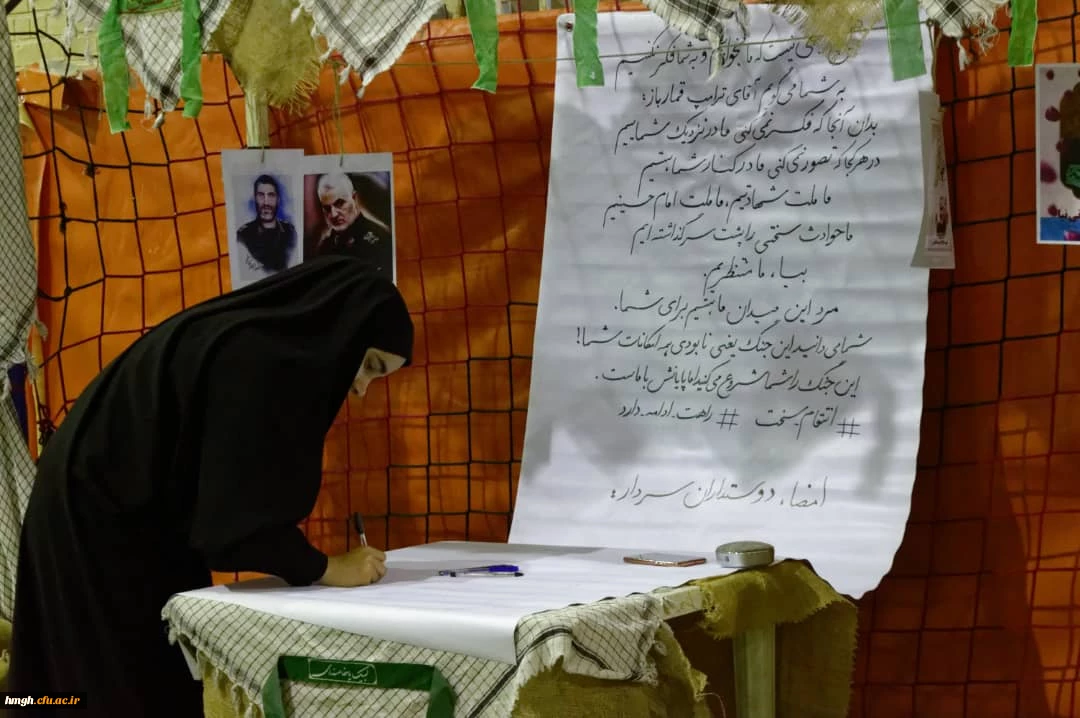 نیست که ما بخوابیم و به شما فکر نکنیم
به شما می گویم آقای ترامپ قمارباز؛
بدان آنجا که فکر نمی کنی ما در نزدیک شماییم
در هر کجا که تصور نمی کنی ما در کنار شما هستیم
ما ملت شهادتیم، ما ملت امام حسینیم
ما حوادث سختی را پشت سر گذاشته ایم
بیا، ما منتظریم.
مرد این میدان ما هستیم برای شما.
شما می دانید این جنگ یعنی نابودی همه امکانات شما!
این جنگ را شما شروع می کنید اما پایانش با ماست.
#انتقام_سخت #راهت_ادامه_دارد
امضاء دوستداران سردار؛
لبیک یا خامنه ای
hmgh.cfu.ac.ir